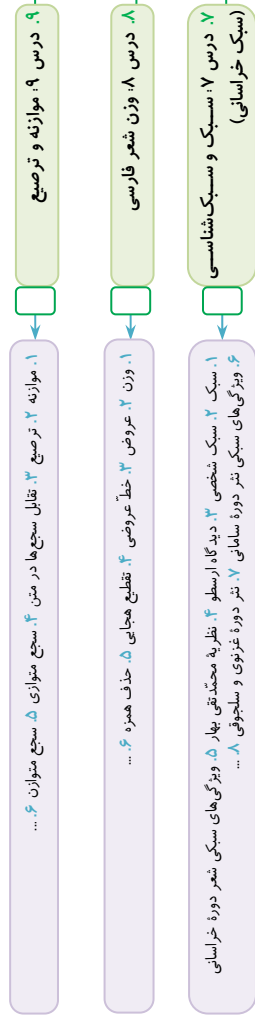 ۷. درس ۷: سبک و سبک‌شناسی
(سبک خراسانی)
۱. سبک ۲. سبک شخصی ۳. دیدگاه ارسطو ۴. نظریهٔ محمّدتقی بهار ۵. ویژگی‌های سبکی شعر دورهٔ خراسانی
۶. ویژگی‌های سبکی نثر دورهٔ سامانی ۷. نثر دورهٔ غزنوی و سلجوقی ۸. ...
۸. درس ۸: وزن شعر فارسی
۱. وزن ۲. عروض ۳. خطّ عروضی ۴. تقطیع هجایی ۵. حذف همزه ۶. ...
۹. درس ۹: موازنه و ترصیع
۱. موازنه ۲. ترصیع ۳. تقابل سجع‌ها در متن ۴. سجع متوازی ۵. سجع متوازن ۶. ...